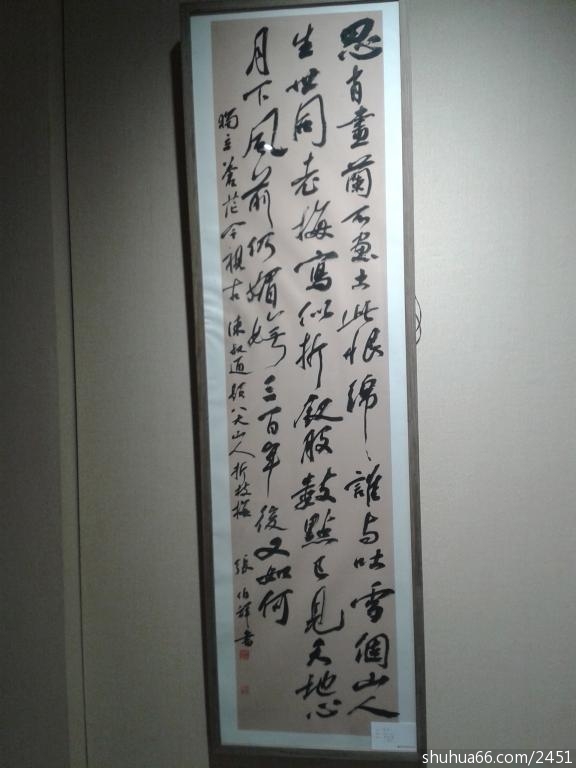 思肖畫蘭不畫土此恨綿〻誰与吐雪個山人
生世同老梅寫似折釵股數點已見天地心
月下風前仍媚嫵三百年後又如何
獨立蒼茫今視古 陳叔通題八大山人折枝梅 張伯 書
shuhua66.com/2451